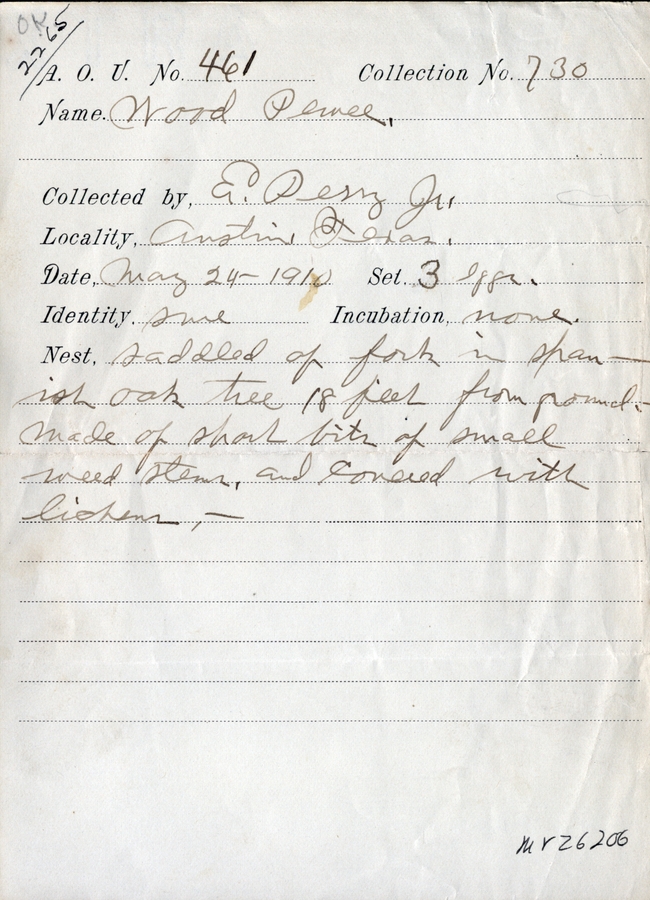 OK
2265
A. O. U. No. 461 Collection No. 730
Name. Wood Pewee.
Collected by, E. Perry Jr.
Locality, Austin, Texas.
Date, May 24 - 1910 Set. 3 Eggs.
Identity. sure Incubation, none.
Nest, saddled of fork in span-
ish oak tree 18 feet from ground.-
made of short bits of small
weed stems, and covered with
lichens,-
MV26206